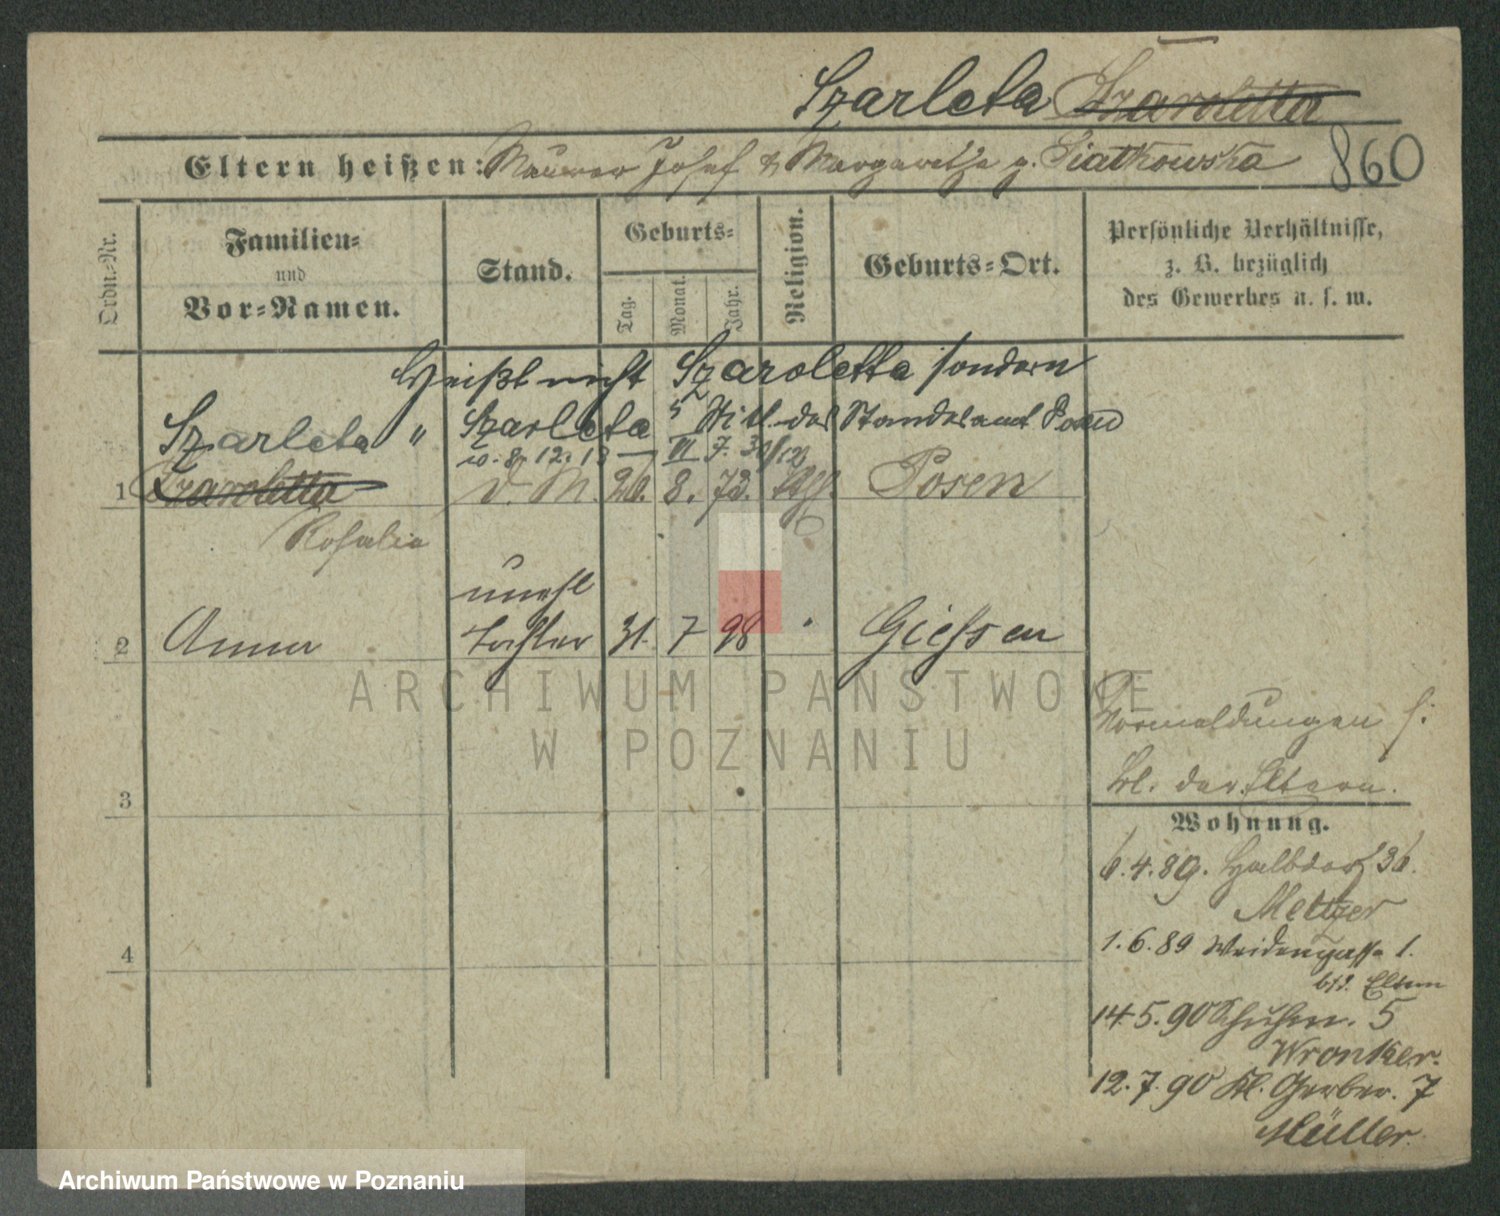 Szarleta Szaroletta
860
Eltern heißen: Maurer Josef & Margarethe g. Piatkowska
Ordn.-Nr.
Familien-
und
Vor-Namen.
Stand.
Geburts-
Tag.
Monat.
Jahr.
Religion.
Geburts-Ort.
Persönliche Verhältnisse,
z. B. bezüglich
des Gewerbes u. s. w.
Heißt nicht Szaroletta sondern
Szarleta " Szarleta Mitl. des Standesamt Posen
v. 8. 12. 13
1 Szaroletta d. M. 26. 8. 72. Posen
Rosalia
unehl
2 Anna Tochter 31. 7 98 Giessen
ARCHIWUM PAŃSTWOWE
W POZNANIU
Vormeldungen s:
bl. der Eltern.
3
Wohnung.
6.4.89. Halbdorf 36.
Metzer
4
1.6.89 Weidengasse 1.
bei Eltern
14.5.90 Schuhm. 5
Wronker.
12.7.90 Kl. Gerber. 7
Müller.
Archiwum Państwowe w Poznaniu